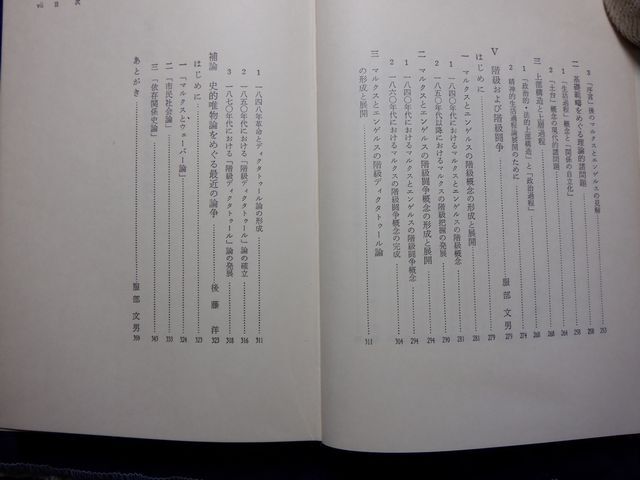 3 『序言』後のマルクスとエンゲルスの見解 253
二 基礎範疇をめぐる理論的諸問題 258
1 「生活過程」概念と「関係の自立化」 258
2 「土台」概念の現代的諸問題 264
三 上部構造と上層過程 268
1 「政治的・法的上部構造」と「政治過程」 268
2 精神的生活過程論展開のために 274
V 階級および階級闘争 服部文男 279
はじめに 279
一 マルクスとエンゲルスの階級概念の形成と展開 281
1 一八四〇年代におけるマルクスとエンゲルスの階級概念 281
2 一八五〇年代以降におけるマルクスの階級把握の発展 290
二 マルクスとエンゲルスの階級闘争概念の形成と展開 294
1 一八四〇年代におけるマルクスとエンゲルスの階級闘争概念 294
2 一八五〇年代以降におけるマルクスの階級闘争概念の完成 304
三 マルクスとエンゲルスの階級ディクタトゥール論
の形成と展開 311
1 一八四八年革命とディクタトゥール論の形成 311
2 一八五〇年代における「階級ディクタトゥール」論の確立 316
3 一八七〇年代における「階級ディクタトゥール」論の発展 318
補論 史的唯物論をめぐる最近の論争 後藤洋 323
はじめに 323
一 「マルクスとウェーバー論」 324
二 「市民社会論」 333
三 「依存関係史論」 343
あとがき 服部文男 359
目次
vii